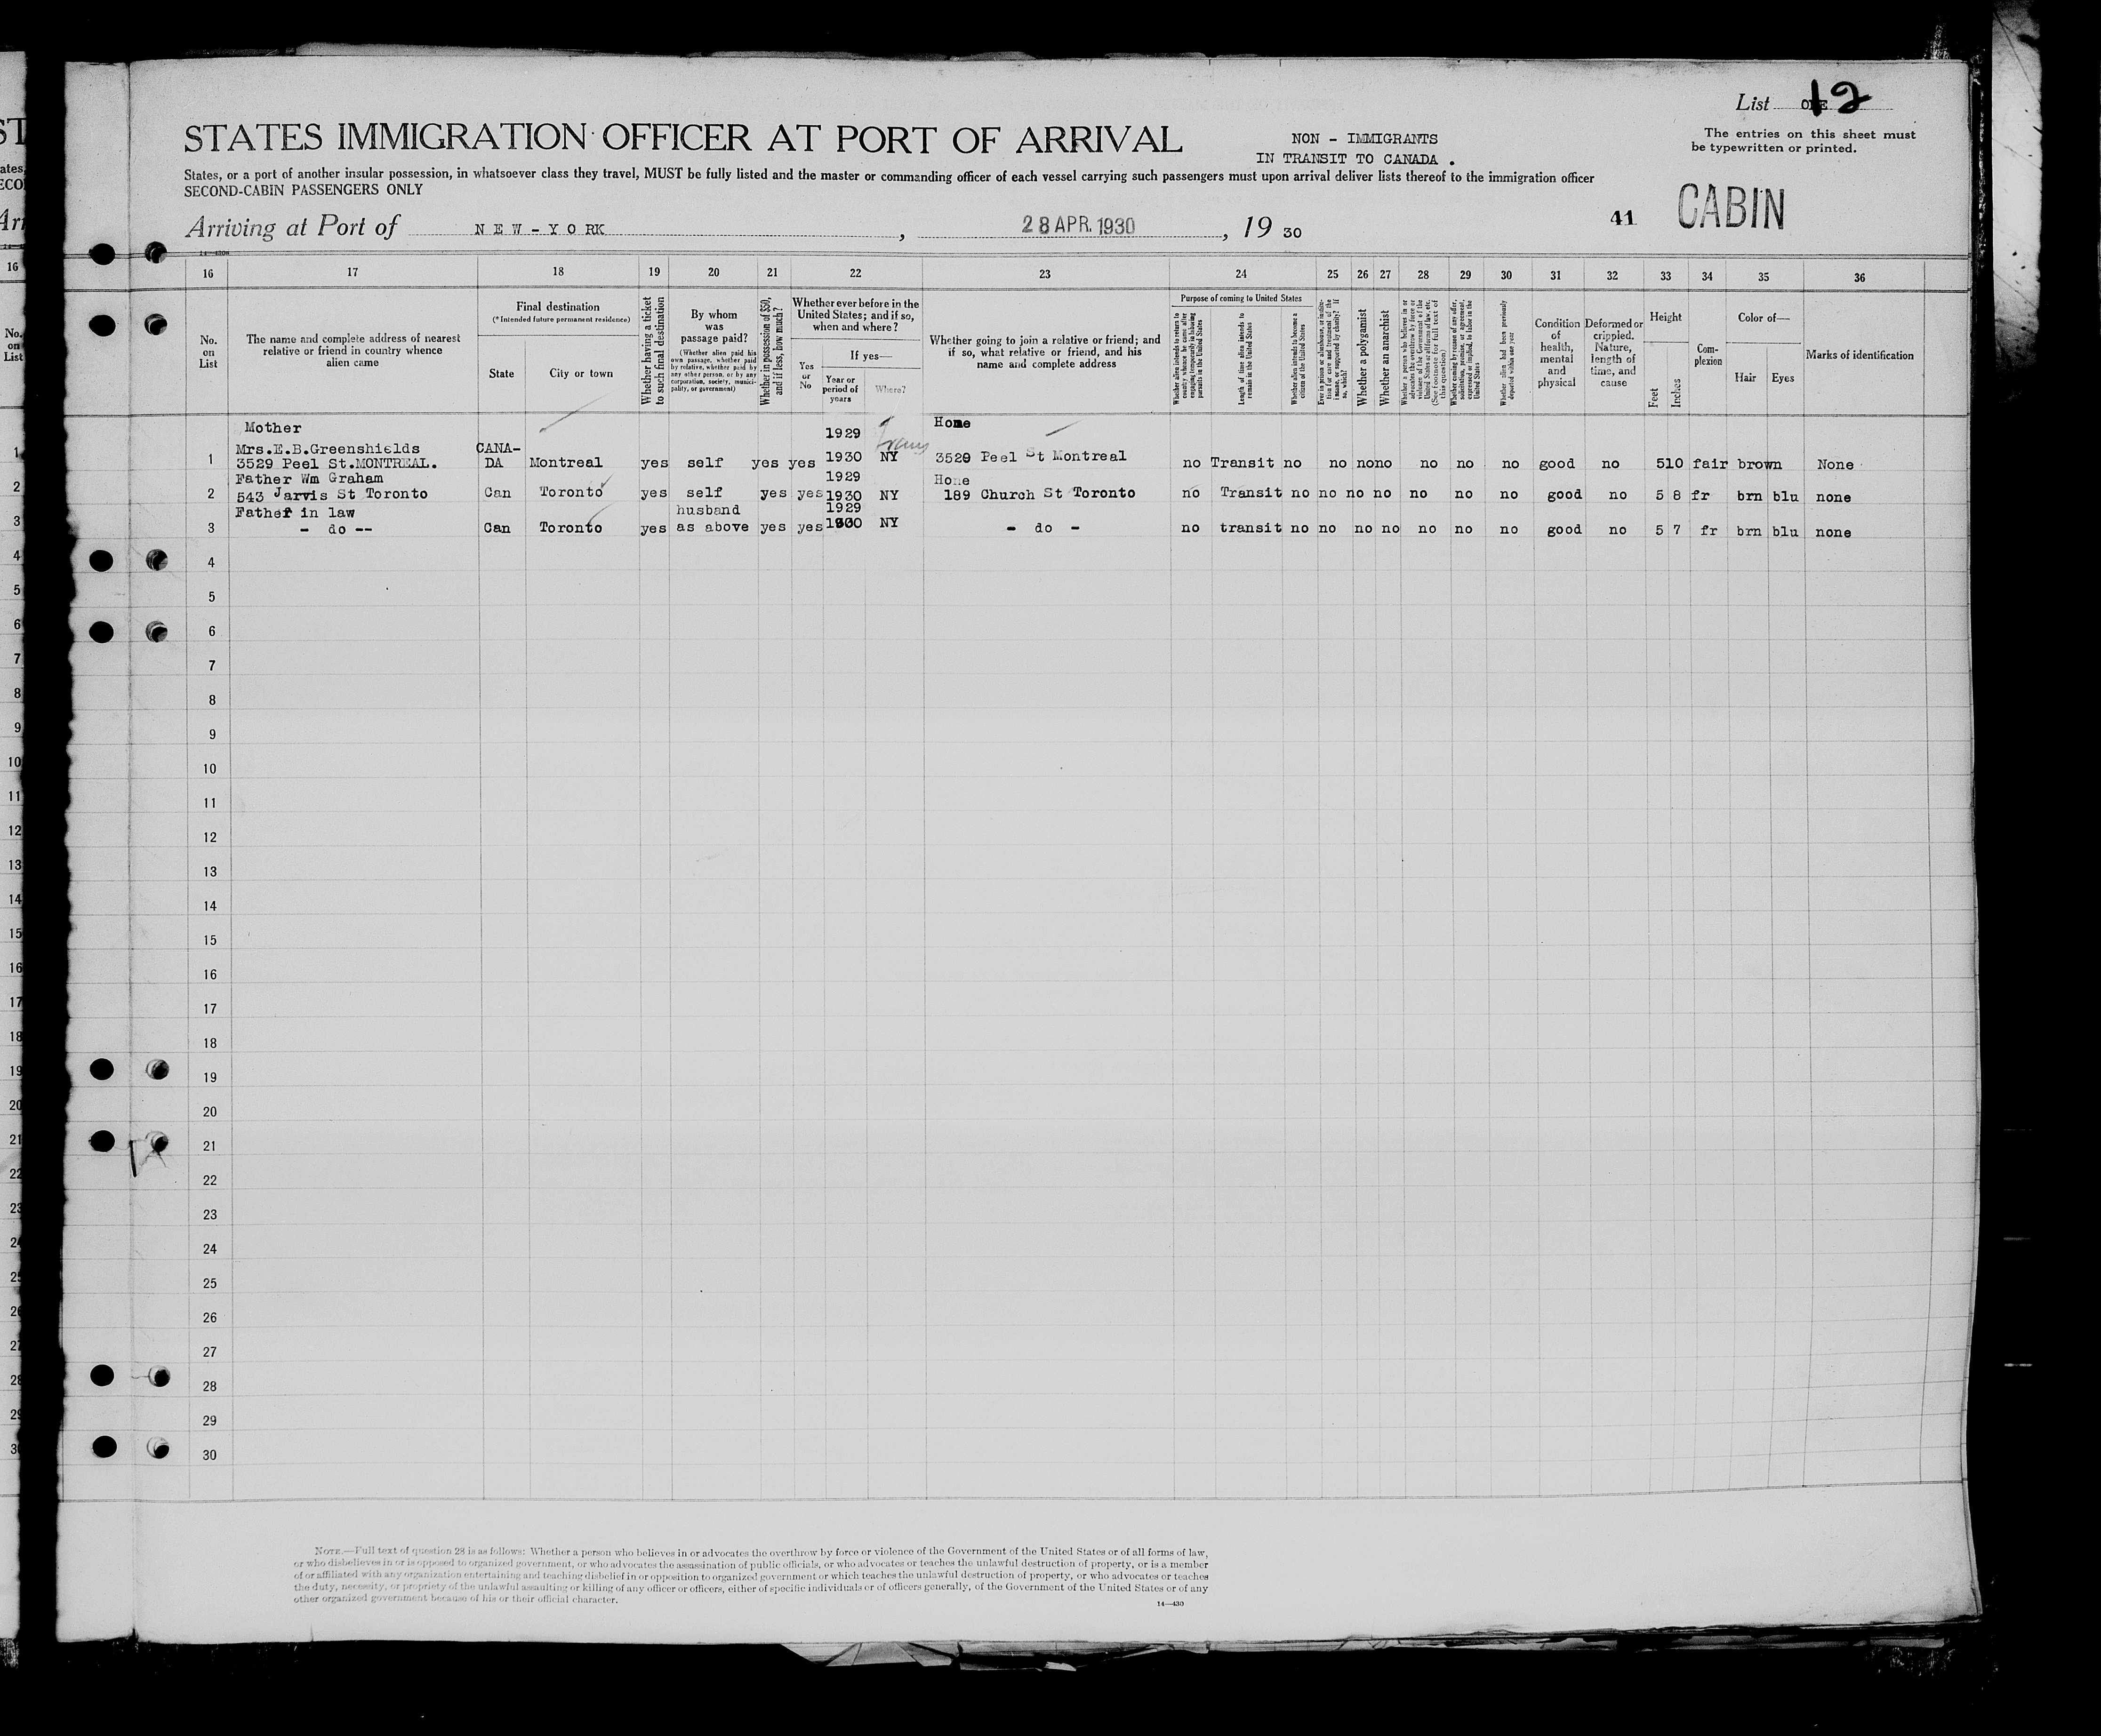 List 12
The entries on this sheet must
be typewritten or printed.
STATES IMMIGRATION OFFICER AT PORT OF ARRIVAL
NON - IMMIGRANTS
IN TRANSIT TO CANADA .
States, or a port of another insular possession, in whatsoever class they travel, MUST be fully listed and the master or commanding officer of each vessel carrying such passengers must upon arrival deliver lists thereof to the immigration officer
SECOND-CABIN PASSENGERS ONLY
CABIN
41
Arriving at Port of NEW-YORK, 28 APR. 1930, 19 30
16 17 18 19 20 21 22 23 24 25 26 27 28 29 30 31 32 33 34 35 36
No. on List
The name and complete address of nearest
relative or friend in country whence
alien came
Final destination
(*Intended future permanent residence)
State
City or town
Whether having a ticket
to such final destination
By whom
was
passage paid?
(Whether alien paid his
own passage, whether paid
by relative, whether paid by
any other person, or by any
corporation, society, munici-
pality, or government)
Whether in possession of $50,
and if less, how much?
Whether ever before in the
United States; and if so,
when and where?
Yes
or
No
If yes—
Year or
period of
years
Where?
Whether going to join a relative or friend; and
if so, what relative or friend, and his
name and complete address
Purpose of coming to United States
Whether alien intends to return to
country whence he came after
engaging temporarily in laboring
pursuits in the United States
Length of time alien intends to
remain in the United States
Whether alien intends to become a
citizen of the United States
Whether a polygamist
Whether an anarchist
Whether alien had been previously
deported within one year
Condition
of
health,
mental
and
physical
Deformed or
crippled.
Nature,
length of
time, and
cause
Height
Feet
Inches
Com-
plexion
Color of—
Hair
Eyes
Marks of identification
Mother 1929 Home
Mrs.E.B.Greenshields CANA-
1 3529 Peel St.MONTREAL. DA Montreal yes self yes yes 1930 NY 3529 Peel St Montreal no Transit no no no no no no no good no 5 10 fair brown None
Father Wm Graham 1929 Home
2 543 Jarvis St Toronto Can Toronto yes self yes yes 1930 NY 189 Church St Toronto no Transit no no no no no no no good no 5 8 fr brn blu none
Father in law husband 1929
3 - do -- Can Toronto yes as above yes yes 1930 NY - do - no transit no no no no no no no good no 5 7 fr brn blu none
4
5
6
7
8
9
10
11
12
13
14
15
16
17
18
19
20
21
22
23
24
25
26
27
28
29
30
NOTE.—Full text of question 28 is as follows: Whether a person who believes in or advocates the overthrow by force or violence of the Government of the United States or of all forms of law,
or who disbelieves in or is opposed to organized government, or who advocates the assassination of public officials, or who advocates or teaches the unlawful destruction of property, or is a member
of or affiliated with any organization entertaining and teaching disbelief in or opposition to organized government or which teaches the unlawful destruction of property, or who advocates or teaches
the duty, necessity, or propriety of the unlawful assaulting or killing of any officer or officers, either of specific individuals or of officers generally, of the Government of the United States or of any
other organized government because of his or their official character.
14—430